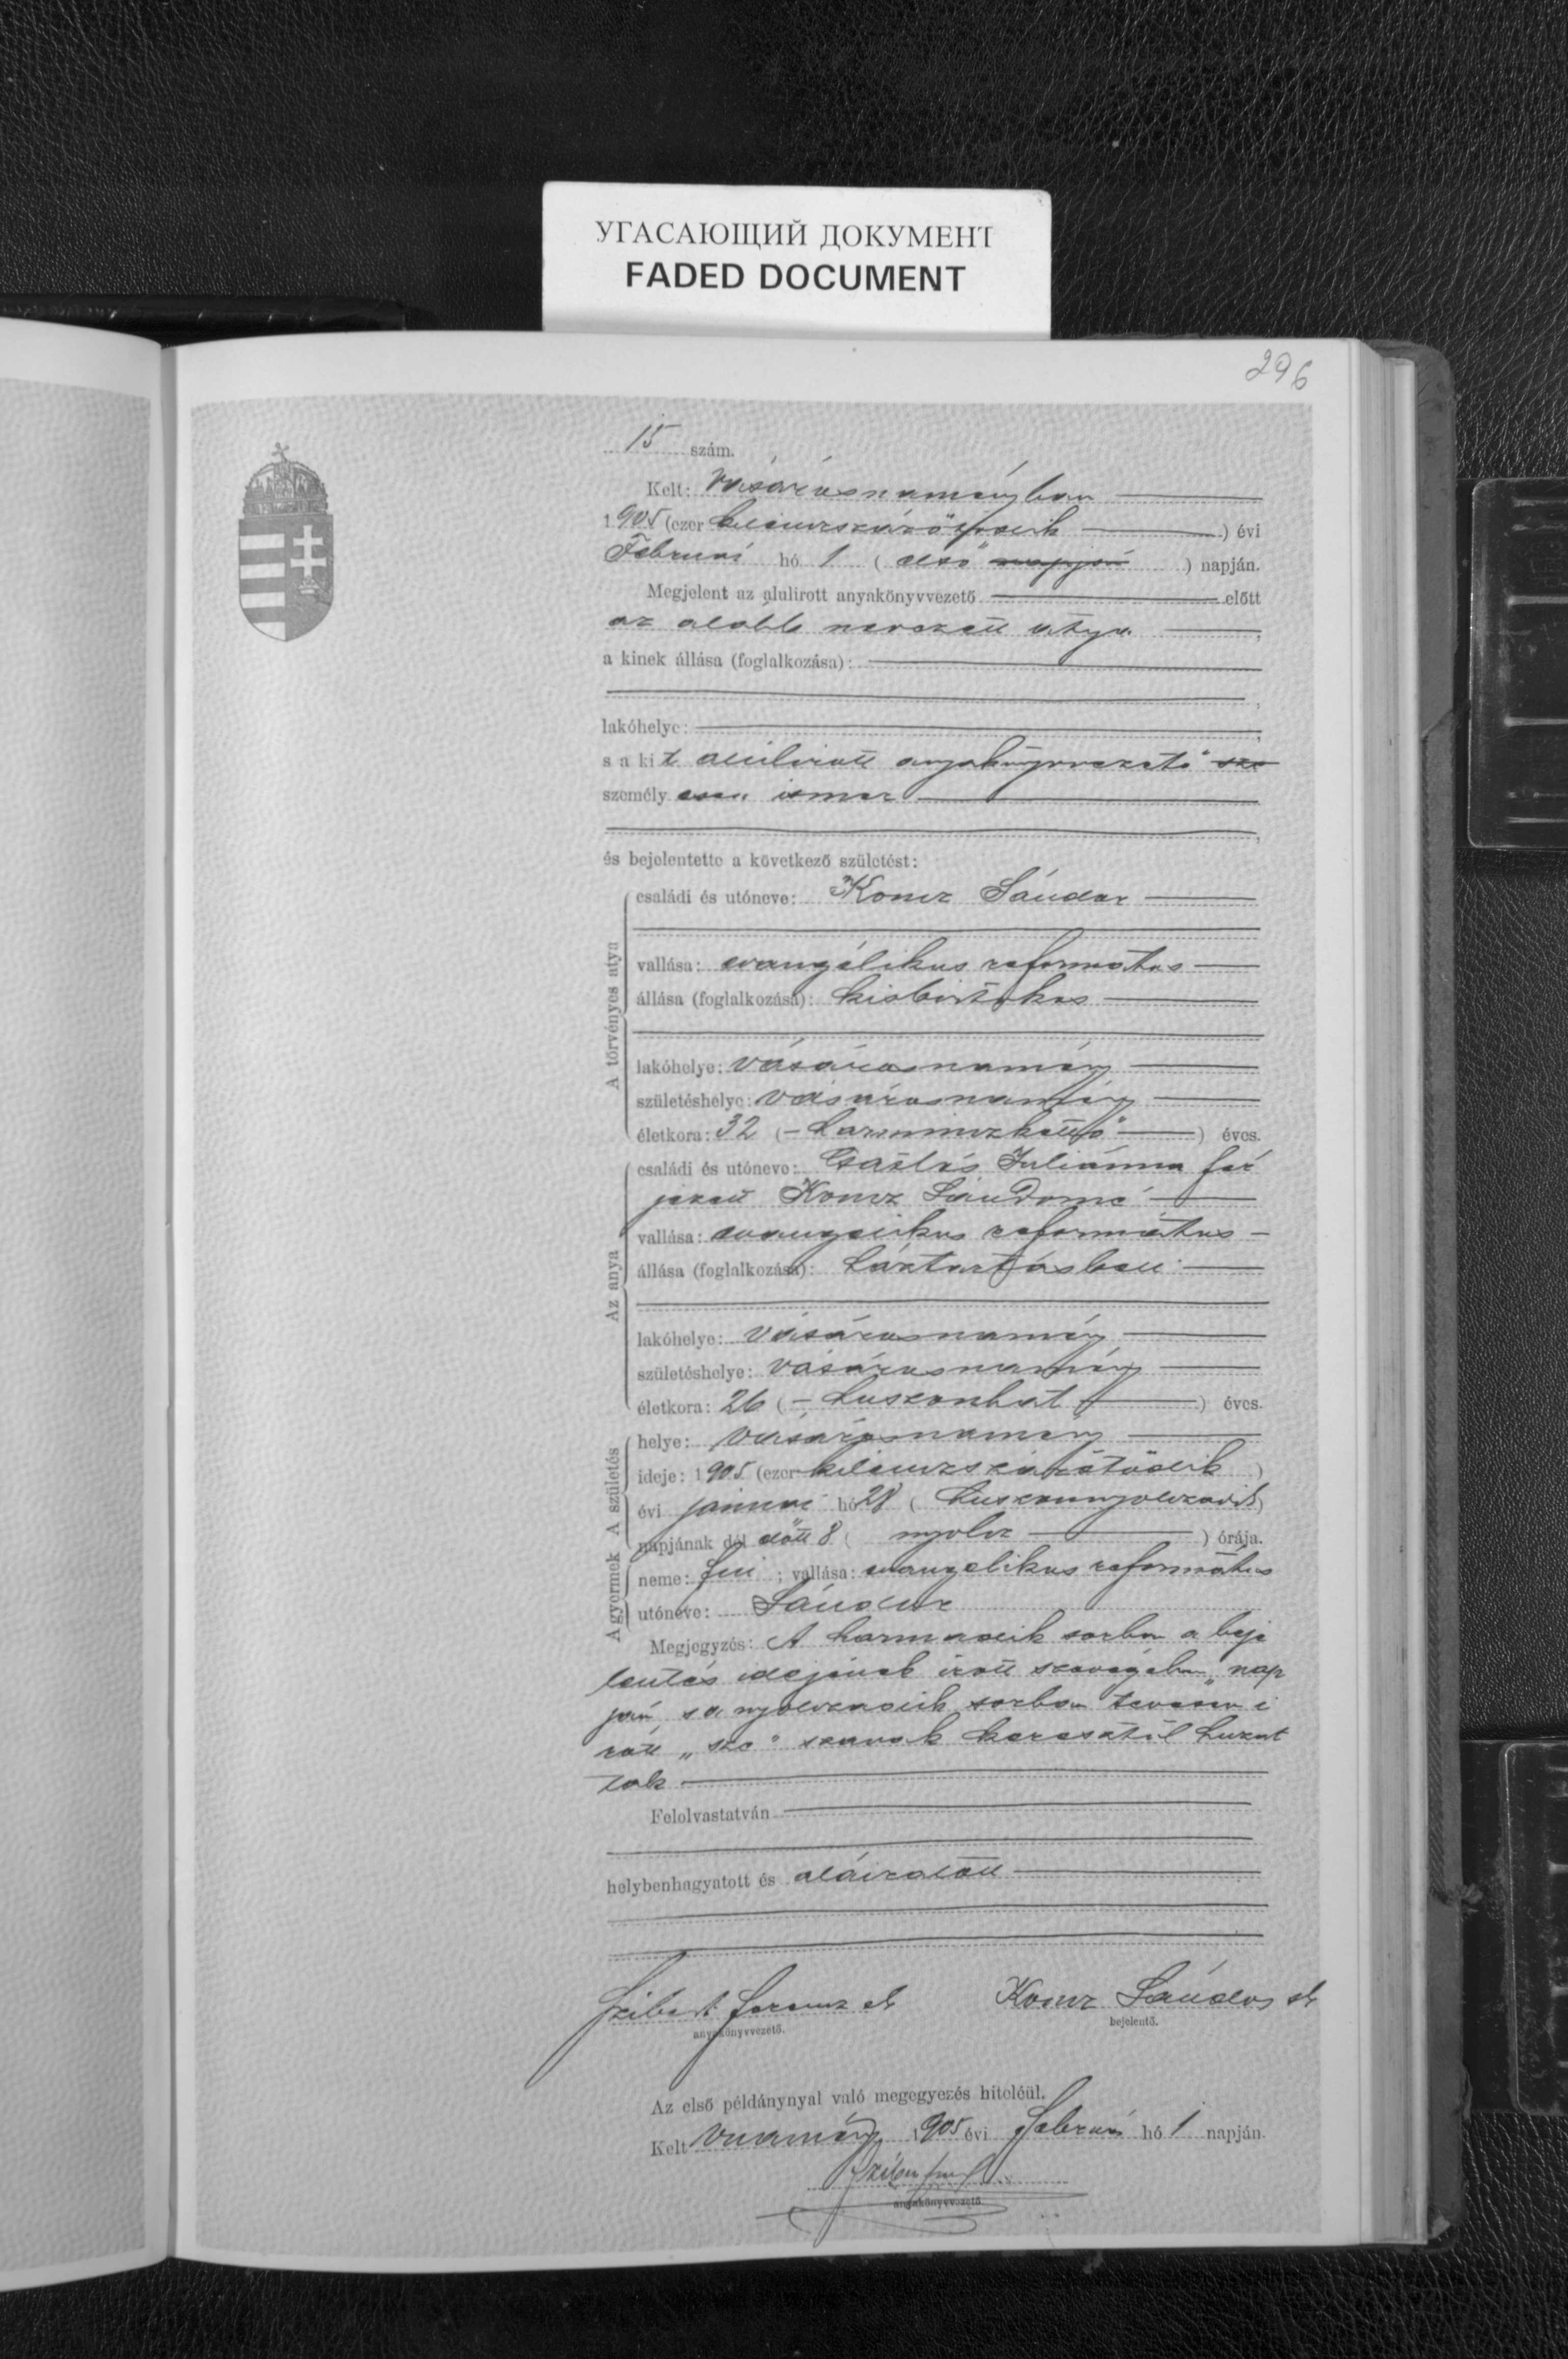 УГАСАЮЩИЙ ДОКУМЕНТ
FADED DOCUMENT
296
15 szám.
Kelt: Vásárosnaményban
1905 (ezer kilencszázötödik) évi
Február hó 1 (első napján) napján.
Megjelent az alulirott anyakönyvvezető előtt
az alább nevezett atya,
a kinek állása (foglalkozása):
lakóhelye:
s a kit alulirott anyakönyvvezető sze
személyesen ismer
és bejelentette a következő születést:
A törvényes atya
családi és utóneve: Koncz Sándor
vallása: evangélikus református
állása (foglalkozása): kisbirtokos
lakóhelye: Vásárosnamény
születéshelye: Vásárosnamény
életkora: 32 (harminczkettő) éves.
Az anya
családi és utóneve: Juliánna fér
jezett Koncz Sándorné
vallása: evangelikus református
állása (foglalkozása): háztartásbeli
lakóhelye: Vásárosnamény
születéshelye: Vásárosnamény
életkora: 26 (huszonhat) éves.
A születés
helye: Vásárosnamény
ideje: 1905 (ezer kilenczszázötödik)
évi január hó 28 (huszonnyolczadik)
napjának dél előtt 8 (nyolcz) órája.
A gyermek
neme: fiú; vallása: evangelikus református
utóneve: Sándor
Megjegyzés: A harmadik sorban a beje
lentés idejének irott szavégében „nap
ján" s a nyolczadik sorban tevesen i
rott „sze" szavak keresztül huzat
tak
Felolvastatván
helybenhagyatott és aláiratott
Ferencz sk Koncz Sándor sk
anyakönyvvezető. bejelentő.
Az első példánynyal való megegyezés hiteléül.
Kelt Vnamény 1905 évi Február hó 1 napján.
anyakönyvvezető